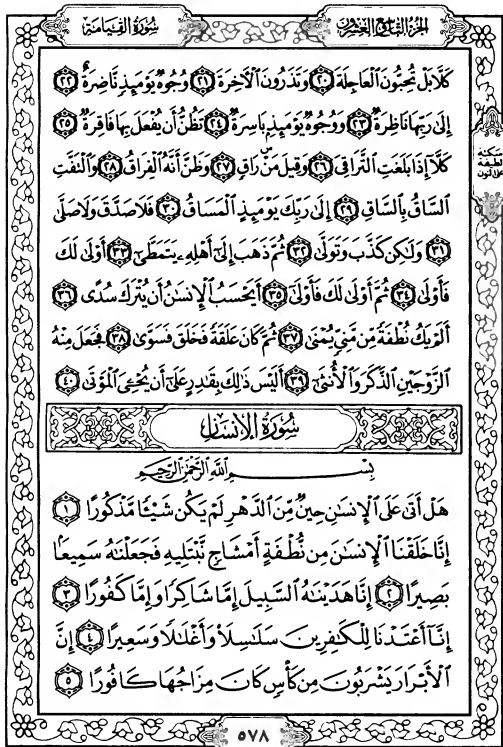 سُورَةُ القِيَامَةِ
الجُزْءُ التَّاسِعُ وَالعِشْرُونَ
كَلَّا بَلْ تُحِبُّونَ الْعَاجِلَةَ ٢٠ وَتَذَرُونَ الْآخِرَةَ ٢١ وُجُوهٌ يَوْمَئِذٍ نَّاضِرَةٌ ٢٢
إِلَىٰ رَبِّهَا نَاظِرَةٌ ٢٣ وَوُجُوهٌ يَوْمَئِذٍ بَاسِرَةٌ ٢٤ تَظُنُّ أَن يُفْعَلَ بِهَا فَاقِرَةٌ ٢٥
كَلَّا إِذَا بَلَغَتِ التَّرَاقِيَ ٢٦ وَقِيلَ مَنْ ۜ رَاقٍ ٢٧ وَظَنَّ أَنَّهُ الْفِرَاقُ ٢٨ وَالْتَفَّتِ
السَّاقُ بِالسَّاقِ ٢٩ إِلَىٰ رَبِّكَ يَوْمَئِذٍ الْمَسَاقُ ٣٠ فَلَا صَدَّقَ وَلَا صَلَّىٰ
٣١ وَلَٰكِن كَذَّبَ وَتَوَلَّىٰ ٣٢ ثُمَّ ذَهَبَ إِلَىٰ أَهْلِهِ يَتَمَطَّىٰ ٣٣ أَوْلَىٰ لَكَ
فَأَوْلَىٰ ٣٤ ثُمَّ أَوْلَىٰ لَكَ فَأَوْلَىٰ ٣٥ أَيَحْسَبُ الْإِنسَٰنُ أَن يُتْرَكَ سُدًى ٣٦
أَلَمْ يَكُ نُطْفَةً مِّن مَّنِيٍّ يُمْنَىٰ ٣٧ ثُمَّ كَانَ عَلَقَةً فَخَلَقَ فَسَوَّىٰ ٣٨ فَجَعَلَ مِنْهُ
الزَّوْجَيْنِ الذَّكَرَ وَالْأُنثَىٰ ٣٩ أَلَيْسَ ذَٰلِكَ بِقَٰدِرٍ عَلَىٰ أَن يُحْـِۧيَ الْمَوْتَىٰ ٤٠
سُورَةُ الإِنسَانِ
بِسْمِ اللَّهِ الرَّحْمَٰنِ الرَّحِيمِ
هَلْ أَتَىٰ عَلَى الْإِنسَٰنِ حِينٌ مِّنَ الدَّهْرِ لَمْ يَكُن شَيْـًٔا مَّذْكُورًا ١
إِنَّا خَلَقْنَا الْإِنسَٰنَ مِن نُّطْفَةٍ أَمْشَاجٍ نَّبْتَلِيهِ فَجَعَلْنَٰهُ سَمِيعًا
بَصِيرًا ٢ إِنَّا هَدَيْنَٰهُ السَّبِيلَ إِمَّا شَاكِرًا وَإِمَّا كَفُورًا ٣
إِنَّا أَعْتَدْنَا لِلْكَٰفِرِينَ سَلَٰسِلَا۟ وَأَغْلَٰلًا وَسَعِيرًا ٤ إِنَّ
الْأَبْرَارَ يَشْرَبُونَ مِن كَأْسٍ كَانَ مِزَاجُهَا كَافُورًا ٥
سكتة
لطيفة
على النون
٥٧٨